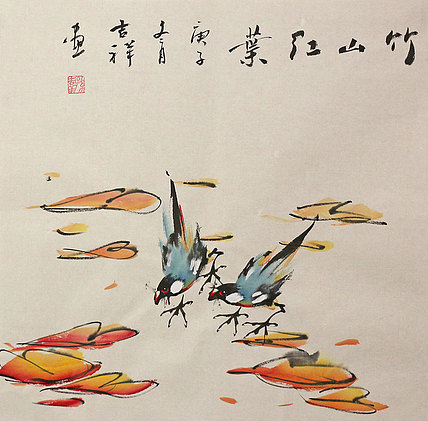 竹山红葉
庚子
月
吉祥
画